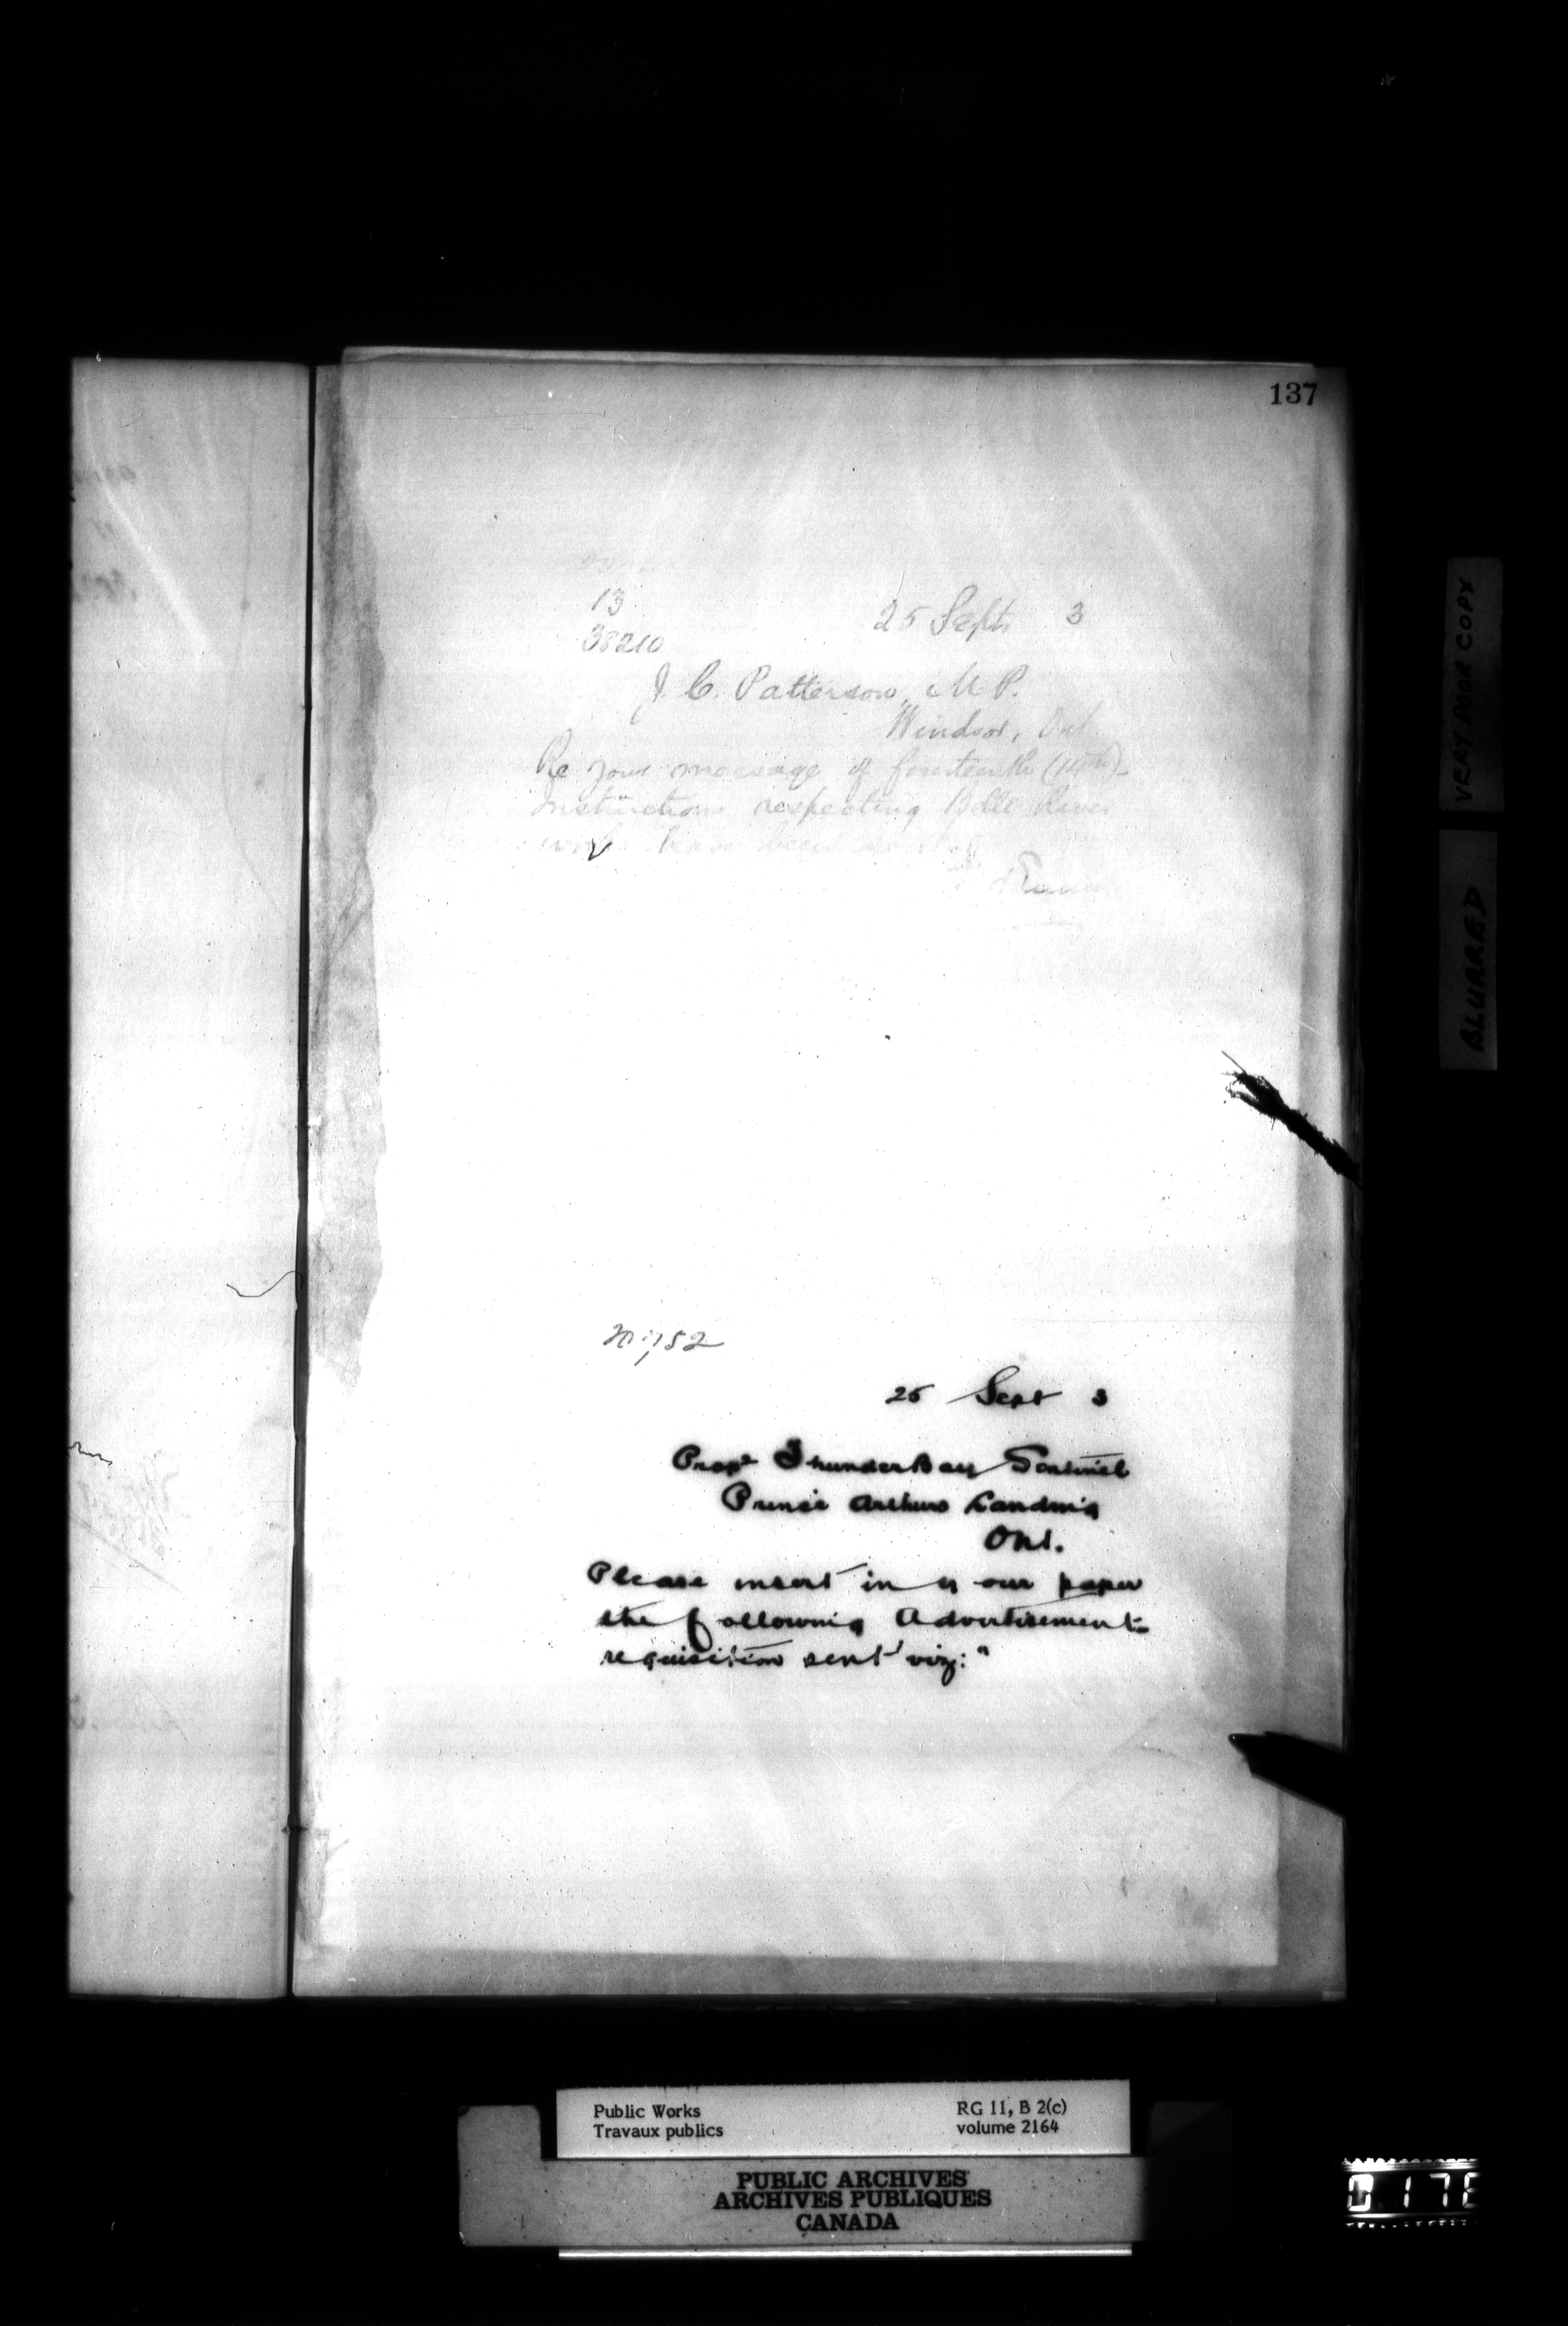 137
13
38210
25 Sept. 3
J. C. Patterson, M P.
Windsor, Ont.
Re your message of fourteenth (14th)-
Instructions respecting Belle River
have been
25 Sept 3
Propr ThunderBay Sentinel
Prince Arthurs Landing
Ont.
Please insert in your paper
the following Advertisement-
requisition sent viz: "
VERY POOR COPY
BLURRED
Public Works
Travaux publics
RG 11, B 2(c)
volume 2164
PUBLIC ARCHIVES
ARCHIVES PUBLIQUES
CANADA